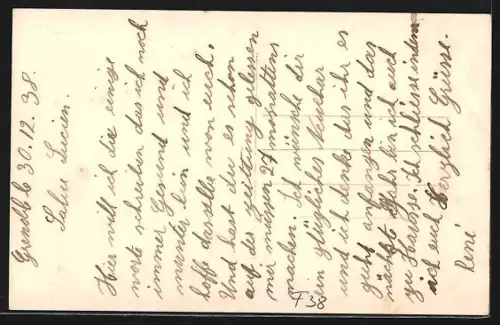 Grenoble 30.12.38.
Salu Lucien.
Hier will ich dir einige
worte schreiben das ich noch
immer Gesund und
munter bin und ich
hoffe dasselbe von euch.
Und hast du es schon
auf der zeittung gelesen
mer müssen 27 monattens
machen. Ich wünsche dir
ein glügliches Neujahr
und ich denke das ihr es
guht anfangen und das
nächste Jahr bin ich auch
zu Hause. Ich schliesse indem
ach euch Herzlich Grüsse.
René
F38